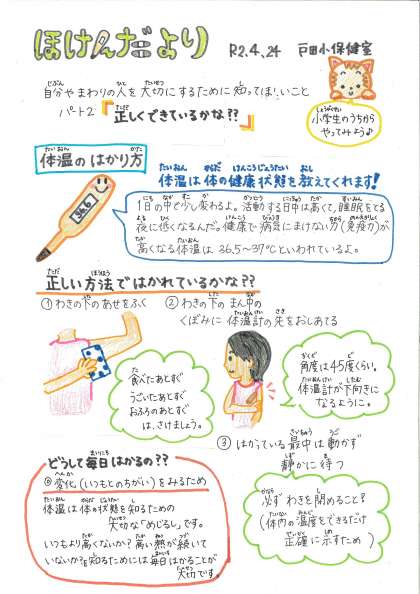 ほけんだより R2.4.24 戸田小保健室
自分やまわりの人を大切にするために知ってほしいこと
パート2 『正しくできているかな??』
小学生のうちから
やってみよう♪
体温のはかり方
体温は体の健康状態を教えてくれます!
36.6
1日の中で少し変わるよ。活動する日中は高くて、睡眠をとる
夜に低くなるんだ。健康で病気にまけない力(免疫力)が
高くなる体温は36.5~37℃といわれているよ。
正しい方法ではかれているかな??
①わきの下のあせをふく
②わきの下のまん中の
くぼみに体温計の先をおしあてる
食べたあとすぐ
うごいたあとすぐ
おふろのあとすぐ
は、さけましょう。
角度は45度くらい。
体温計が下向きに
なるように。
③はかっている最中は動かず
静かに待つ
どうして毎日はかるの??
◎変化(いつもとのちがい)をみるため
体温は体の状態を知るための
大切な「めじるし」です。
いつもより高くないか?高い熱が続いて
いないか?を知るためには毎日はかることが
大切です。
必ずわきを閉めること?
(体内の温度をできるだけ
正確に示すため)